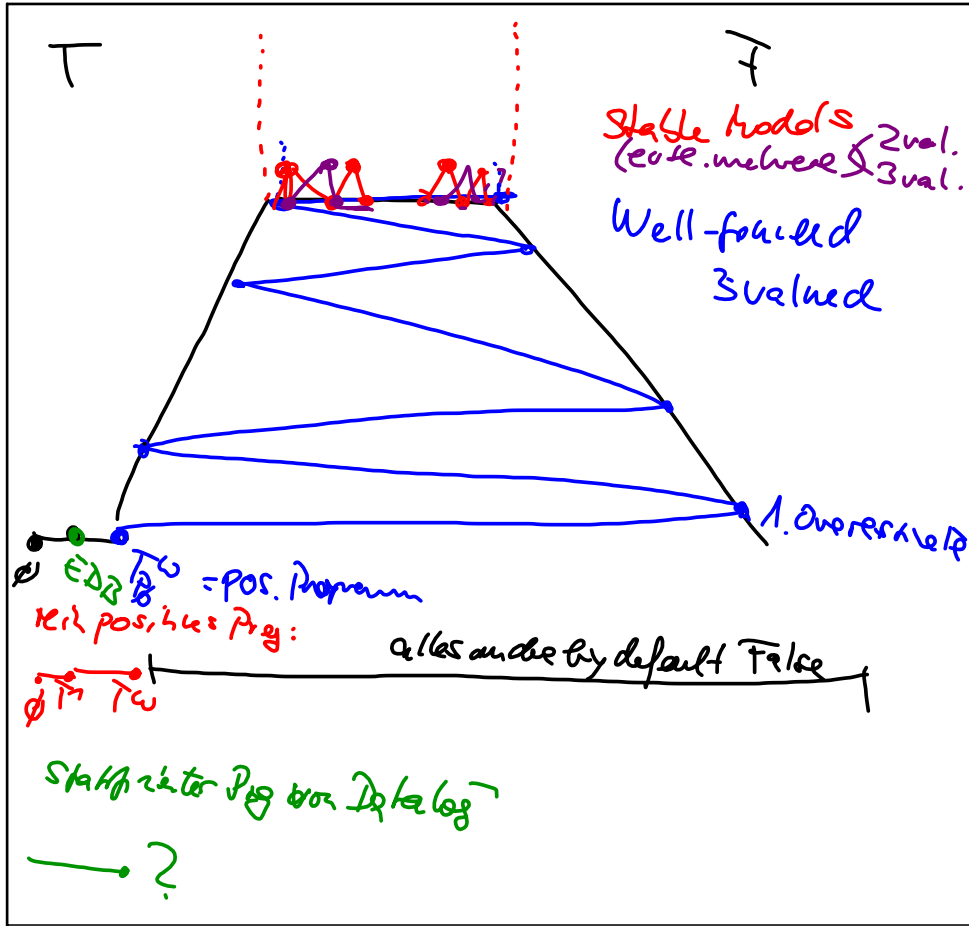 T F
Stable Models
(evtl. mehrere) 2val.
3val.
Well-founded
3valued
1. Overestimate
∅ EDB T_P^ω = pos. Programm
rein positives Prog:
alles andere by default False
∅ T¹ T^ω
Stratifizierter Prog von Datalog¬
?